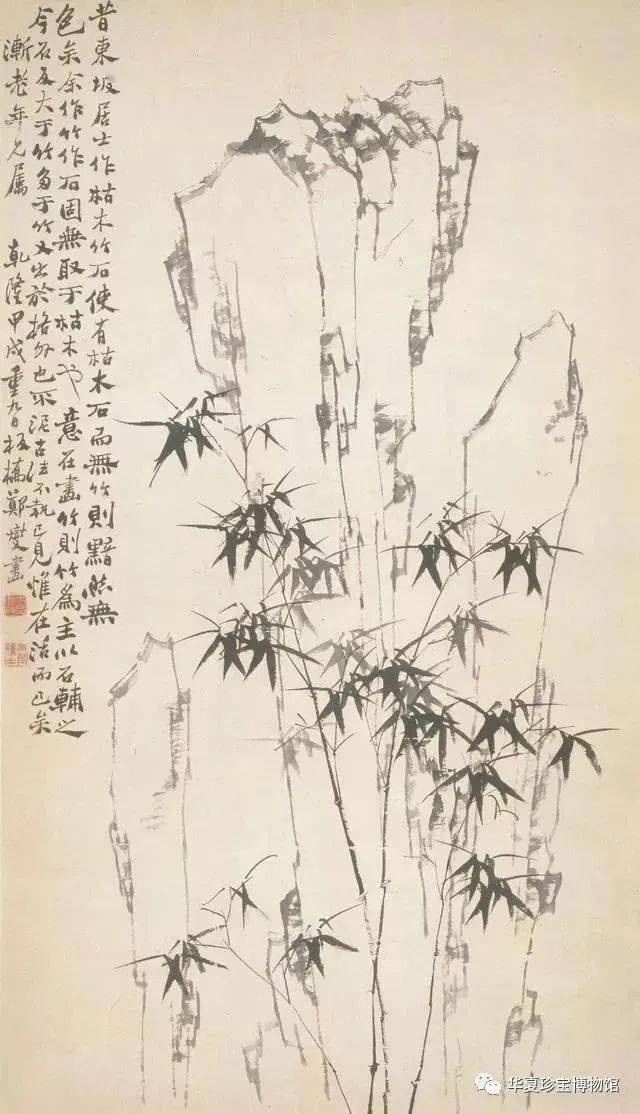 昔東坡居士作枯木竹石使有枯木石而無竹則黯然無
色矣余作竹作石固無取于枯木也意在畫竹則竹為主以石輔之
今石反大于竹多于竹又出於格外也不泥古法不執己見惟在活而已矣
漸老年兄屬 乾隆甲戌重九日板橋鄭燮畫
华夏珍宝博物馆